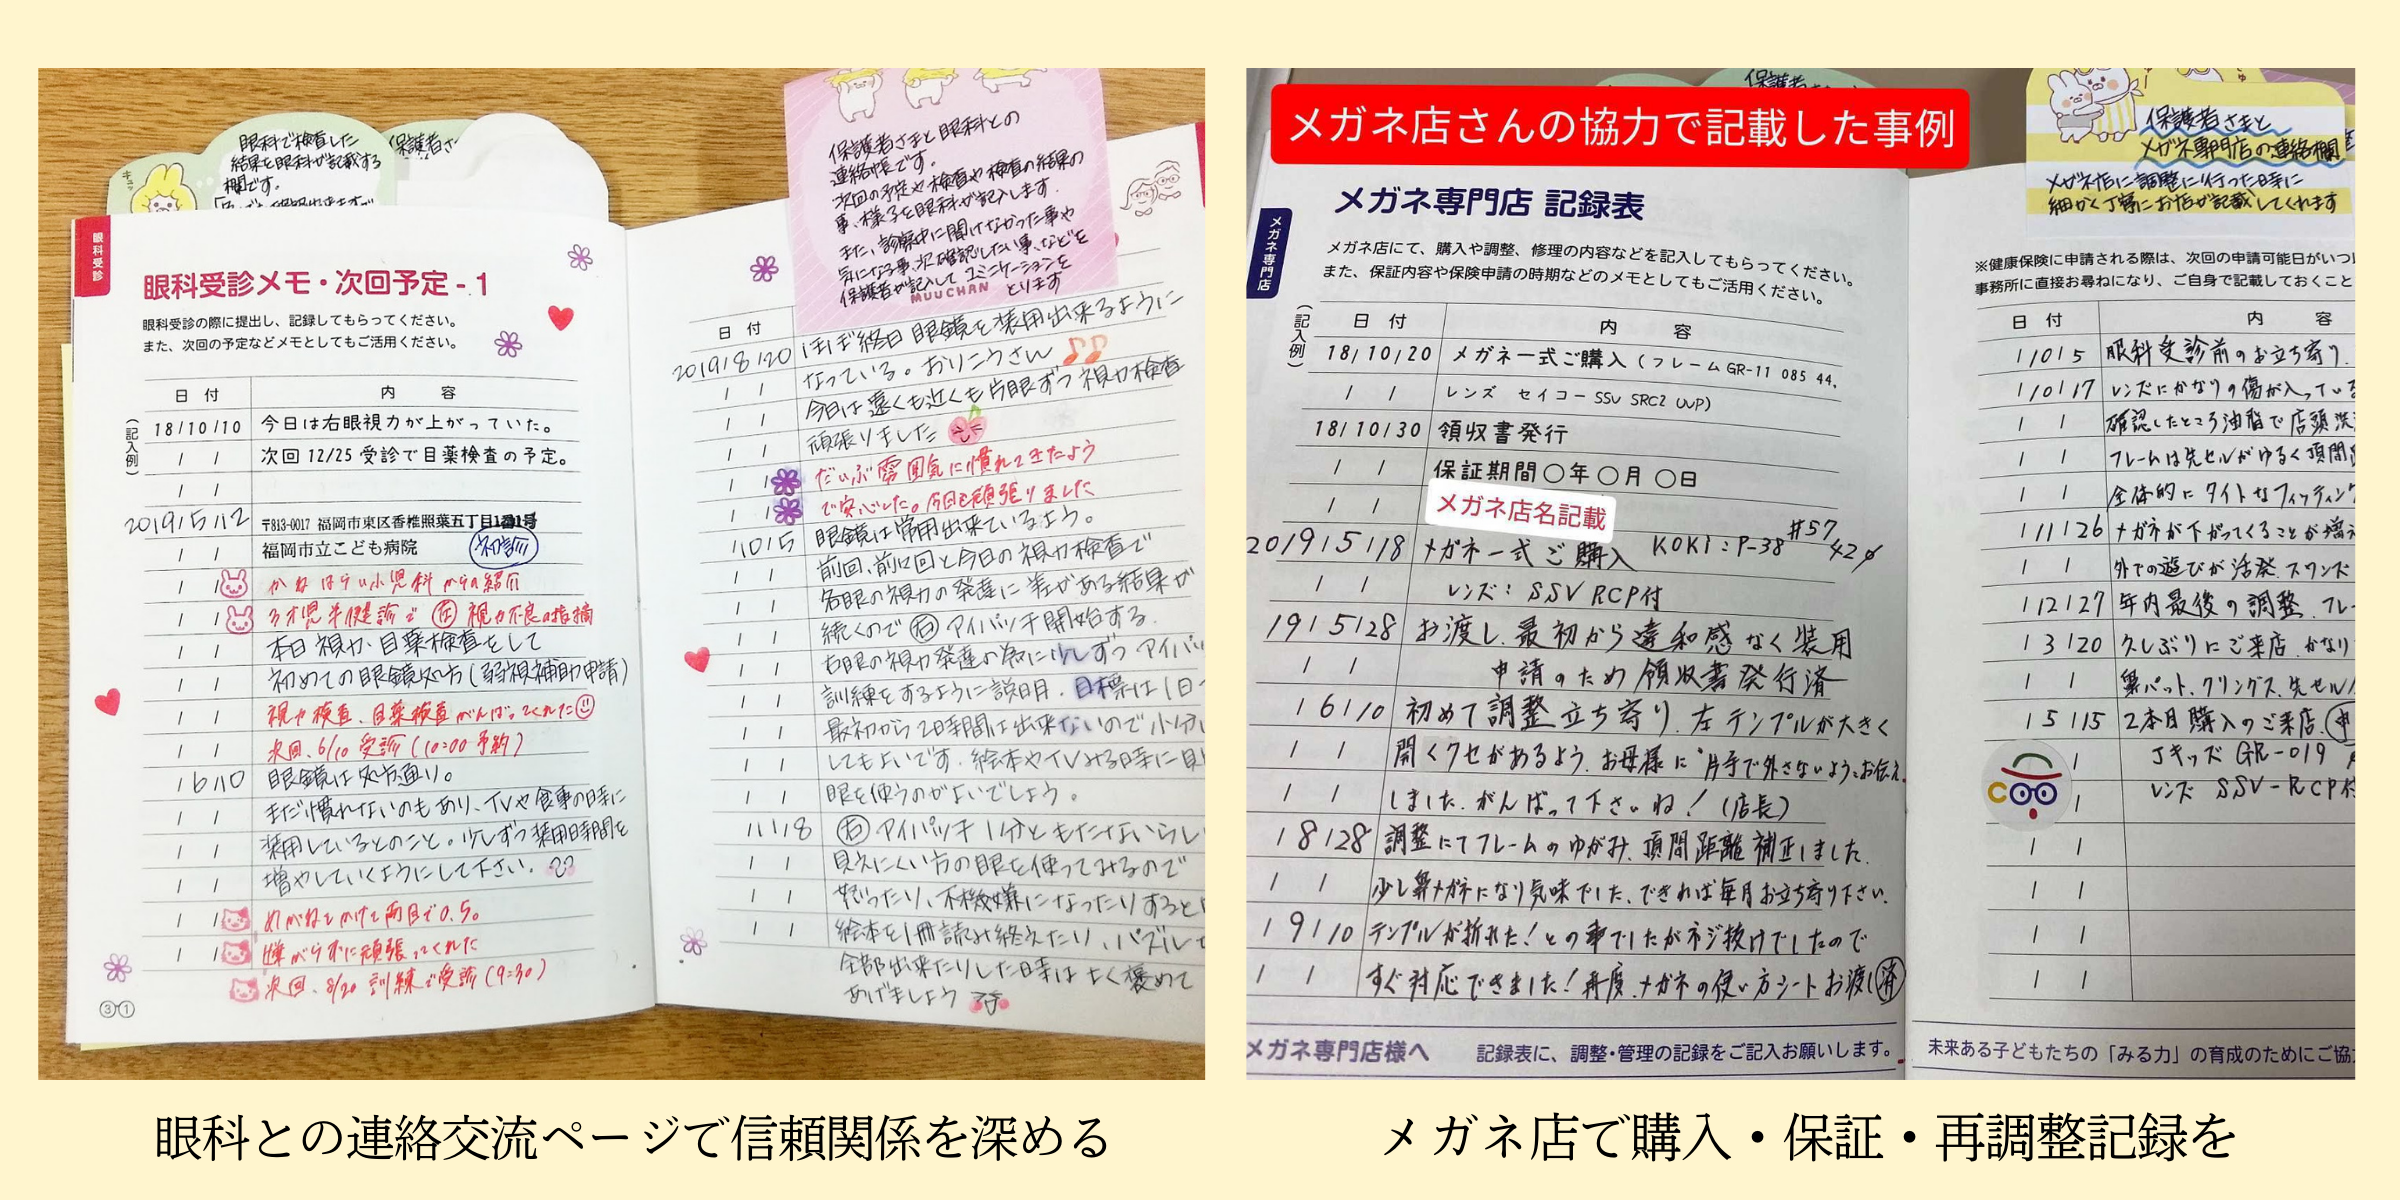 眼科で検査した
結果を眼科が記載する
欄です。
保護者さ
眼科受診
眼科受診メモ・次回予定-1
眼科受診の際に提出し、記録してもらってください。
また、次回の予定などメモとしてもご活用ください。
日 付 内 容
(記入例)
18/10/10 今日は右眼視力が上がっていた。
/ / 次回 12/25 受診で目薬検査の予定。
/ /
2019/5/12 〒813-0017 福岡市東区香椎照葉五丁目1番1号
/ / 福岡市立こども病院 初診
/ / かねはらい小児科からの紹介
/ / 3才児半健診で 左 視力不良の指摘
/ / 本日視力、目薬検査をして
/ / 初めての眼鏡処方(弱視補助申請)
/ / 視力検査、目薬検査がんばってくれた
/ / 次回、6/10 受診(10:00 予約)
/6/10 眼鏡は処方通り。
/ / まだ慣れないのもあり、TVや食事の時に
/ / 装用しているとのこと。少しずつ装用時間を
/ / 増やしていくようにして下さい。
/ / めがねをかけて両目で0.5。
/ / 嫌がらずに頑張ってくれた
次回、8/20 訓練で受診(9:30)
③-①
保護者さまと眼科との
連絡帳です。
次回の予定や検査や検査の結果の
事、様子を眼科が記入します。
また、診察中に聞けなかった事や
気になる事、次確認したい事、などを
保護者が記入してコミニケーションを
とります
MUUCHAN
日 付
2019/8/20 ほぼ終日眼鏡を装用出来るように
/ / なっている。おりこうさん
/ / 今日は遠くも近くも片眼ずつ視力検査
/ / 頑張りました
/ / だいぶ雰囲気に慣れてきたよう
/ / で安心した。今回も頑張りました
/10/5 眼鏡は常用出来ているよう。
/ / 前回、前々回と今日の視力検査で
/ / 各眼の視力の発達に差がある結果が
/ / 続くので 右 アイパッチ開始する。
/ / 右眼の視力発達の為に少しずつアイパッ
/ / 訓練をするように説明。目標は1日
/ / 最初から2時間は出来ないので小分
/ / してもよいです。絵本やTVみる時に
/ / 眼を使うのがよいでしょう。
/11/8 右 アイパッチ1分ともたないらしい
/ / 見えにくい方の眼を使ってみるので
/ / 怒ったり、不機嫌になったりすると
/ / 絵本を1冊読み終えたり、パズル
全部出来たりした時はよく褒めて
あげましょう
眼科との連絡交流ページで信頼関係を深める
保護者
メガネ店さんの協力で記載した事例
メガネ専門店
メガネ専門店 記録表
メガネ店にて、購入や調整、修理の内容などを記入してもらってください。
また、保証内容や保険申請の時期などのメモとしてもご活用ください。
日 付 内 容
(記入例)
18/10/20 メガネ一式ご購入(フレームGR-11 085 44,
/ / レンズ セイコーSSV SRC2 UVP)
18/10/30 領収書発行
/ / 保証期間〇年〇月〇日
メガネ店名記載
2019/5/18 メガネ一式ご購入 KOKI:P-38 #57 42
/ / レンズ:SSV RCP付
19/5/28 お渡し、最初から違和感なく装用
/ / 申請のため領収書発行済
/6/10 初めて調整立ち寄り、左テンプルが大きく
/ / 開くクセがあるよう、お母様に"片手で外さないよう"お伝え
/ / しました。がんばって下さいね!(店長)
/8/28 調整にてフレームのゆがみ、頂間距離補正しました。
/ / 少し鼻メガネになり気味でした、できれば毎月お立ち寄り下さい。
/9/10 テンプルが折れた!との事でしたがネジ抜けでしたので
/ / すぐ対応できました!再度、メガネの使い方シートお渡し済
メガネ専門店様へ 記録表に、調整・管理の記録をご記入お願いします。
保護者さまと
メガネ専門店の連絡欄
メガネ店に調整に行った時に
細かく丁寧にお店が記載してくれます
※健康保険に申請される際は、次回の申請可能日がいつ
事務所に直接お尋ねになり、ご自身で記載しておくこと
日 付 内 容
/10/5 眼科受診前のお立ち寄り。
/10/17 レンズにかなりの傷が入っている
/ / 確認したところ油脂で店頭洗
/ / フレームは先セルがゆるく頂間
/ / 全体的にタイトなフィッティング
/11/26 メガネが下がってくることが増え
/ / 外での遊びが活発、スワンズ
/12/27 年内最後の調整、フレ
/3/20 久しぶりにご来店、かなり
/ / 鼻パット、クリングス、先セル
/5/15 2本目購入のご来店、申
Jキッズ GR-019
レンズ SSV-RCP付
coo
未来ある子どもたちの「みる力」の育成のためにご協
メガネ店で購入・保証・再調整記録を